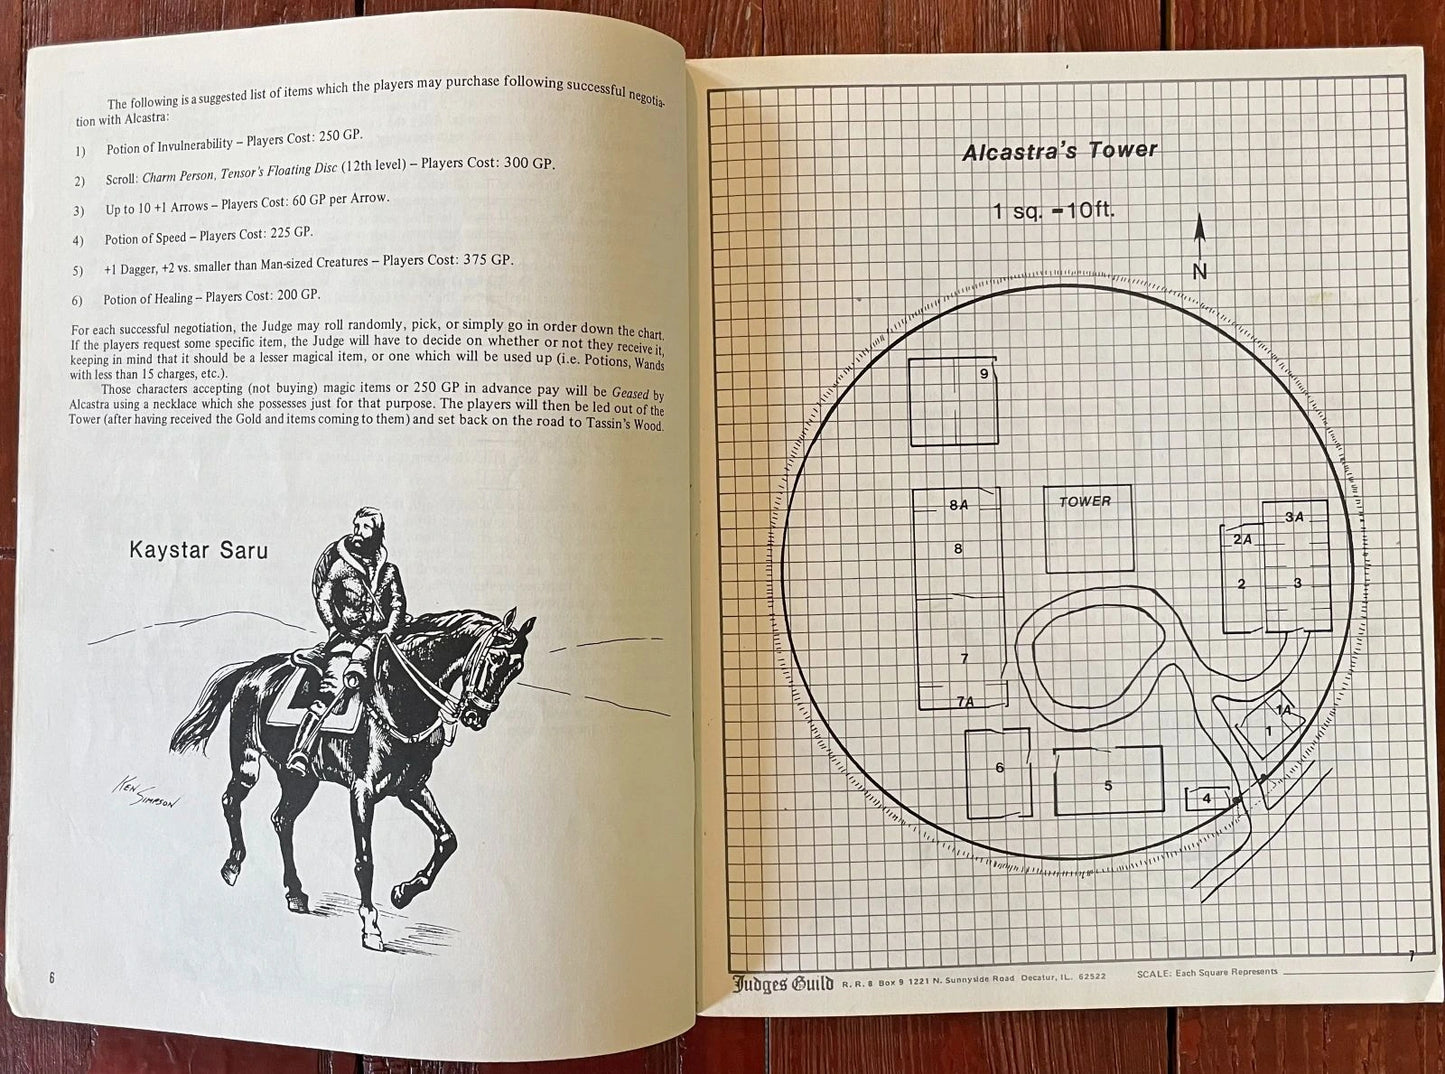 The following is a suggested list of items which the players may purchase following successful negotia-
tion with Alcastra:
1) Potion of Invulnerability – Players Cost: 250 GP.
2) Scroll: Charm Person, Tensor's Floating Disc (12th level) – Players Cost: 300 GP.
3) Up to 10 +1 Arrows – Players Cost: 60 GP per Arrow.
4) Potion of Speed – Players Cost: 225 GP.
5) +1 Dagger, +2 vs. smaller than Man-sized Creatures – Players Cost: 375 GP.
6) Potion of Healing – Players Cost: 200 GP.
For each successful negotiation, the Judge may roll randomly, pick, or simply go in order down the chart.
If the players request some specific item, the Judge will have to decide on whether or not they receive it,
keeping in mind that it should be a lesser magical item, or one which will be used up (i.e. Potions, Wands
with less than 15 charges, etc.).
Those characters accepting (not buying) magic items or 250 GP in advance pay will be Geased by
Alcastra using a necklace which she possesses just for that purpose. The players will then be led out of the
Tower (after having received the Gold and items coming to them) and set back on the road to Tassin's Wood.
Kaystar Saru
Ken
Simpson
6
Alcastra's Tower
1 sq. – 10ft.
N
9
8A
TOWER
3A
2A
8
2
3
7
7A
1A
1
6
5
4
7
Judges Guild R. R. 8 Box 9 1221 N. Sunnyside Road Decatur, IL. 62522 SCALE: Each Square Represents